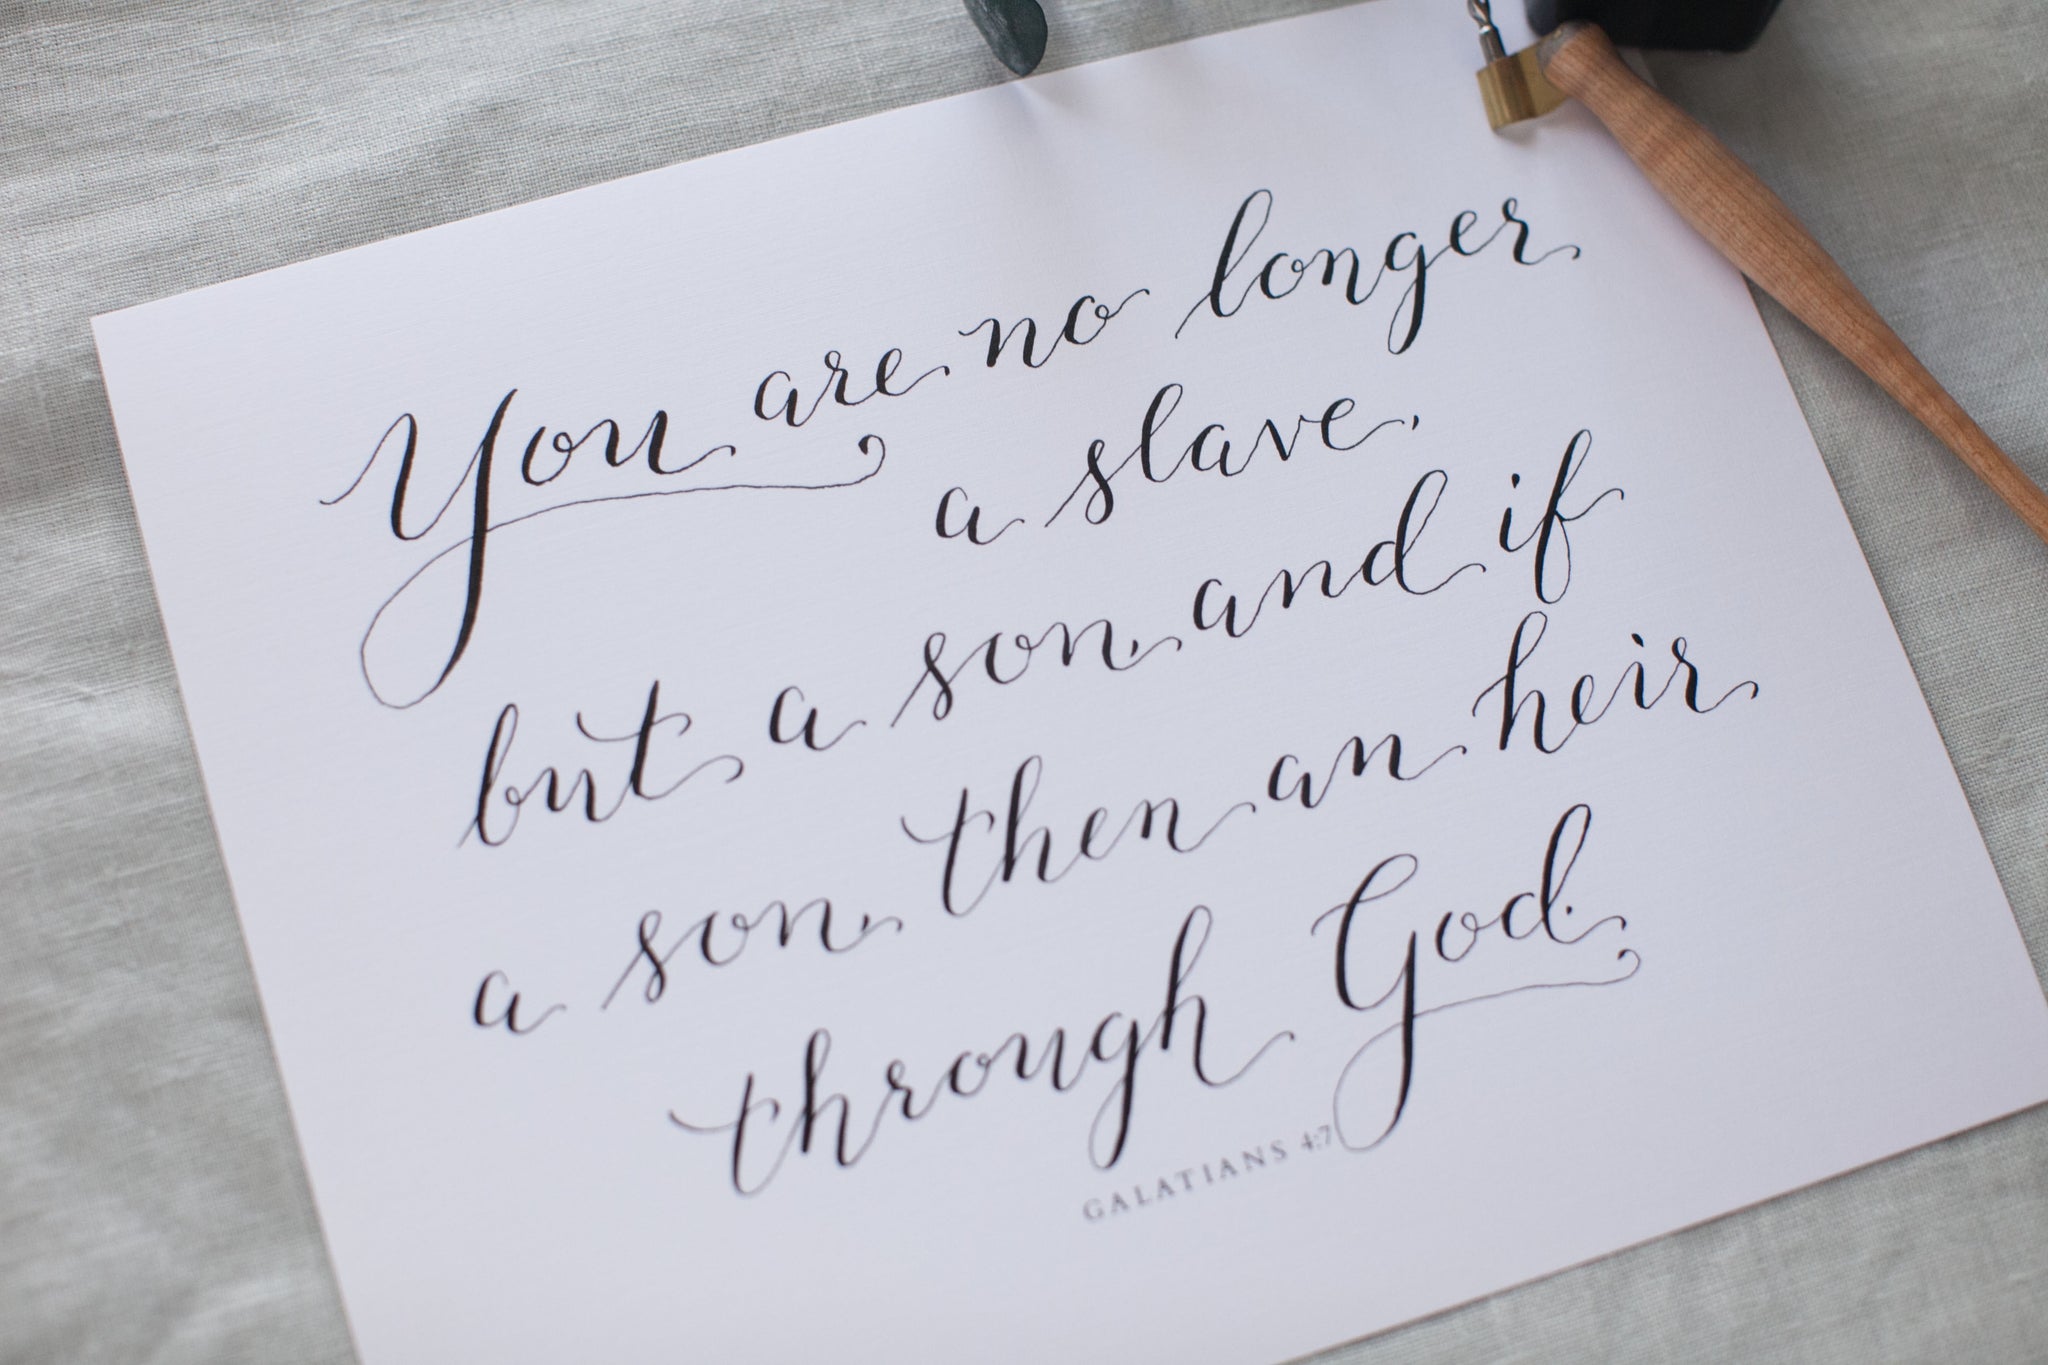 You are no longer
a slave,
but a son, and if
a son, then an heir
through God.
GALATIANS 4:7